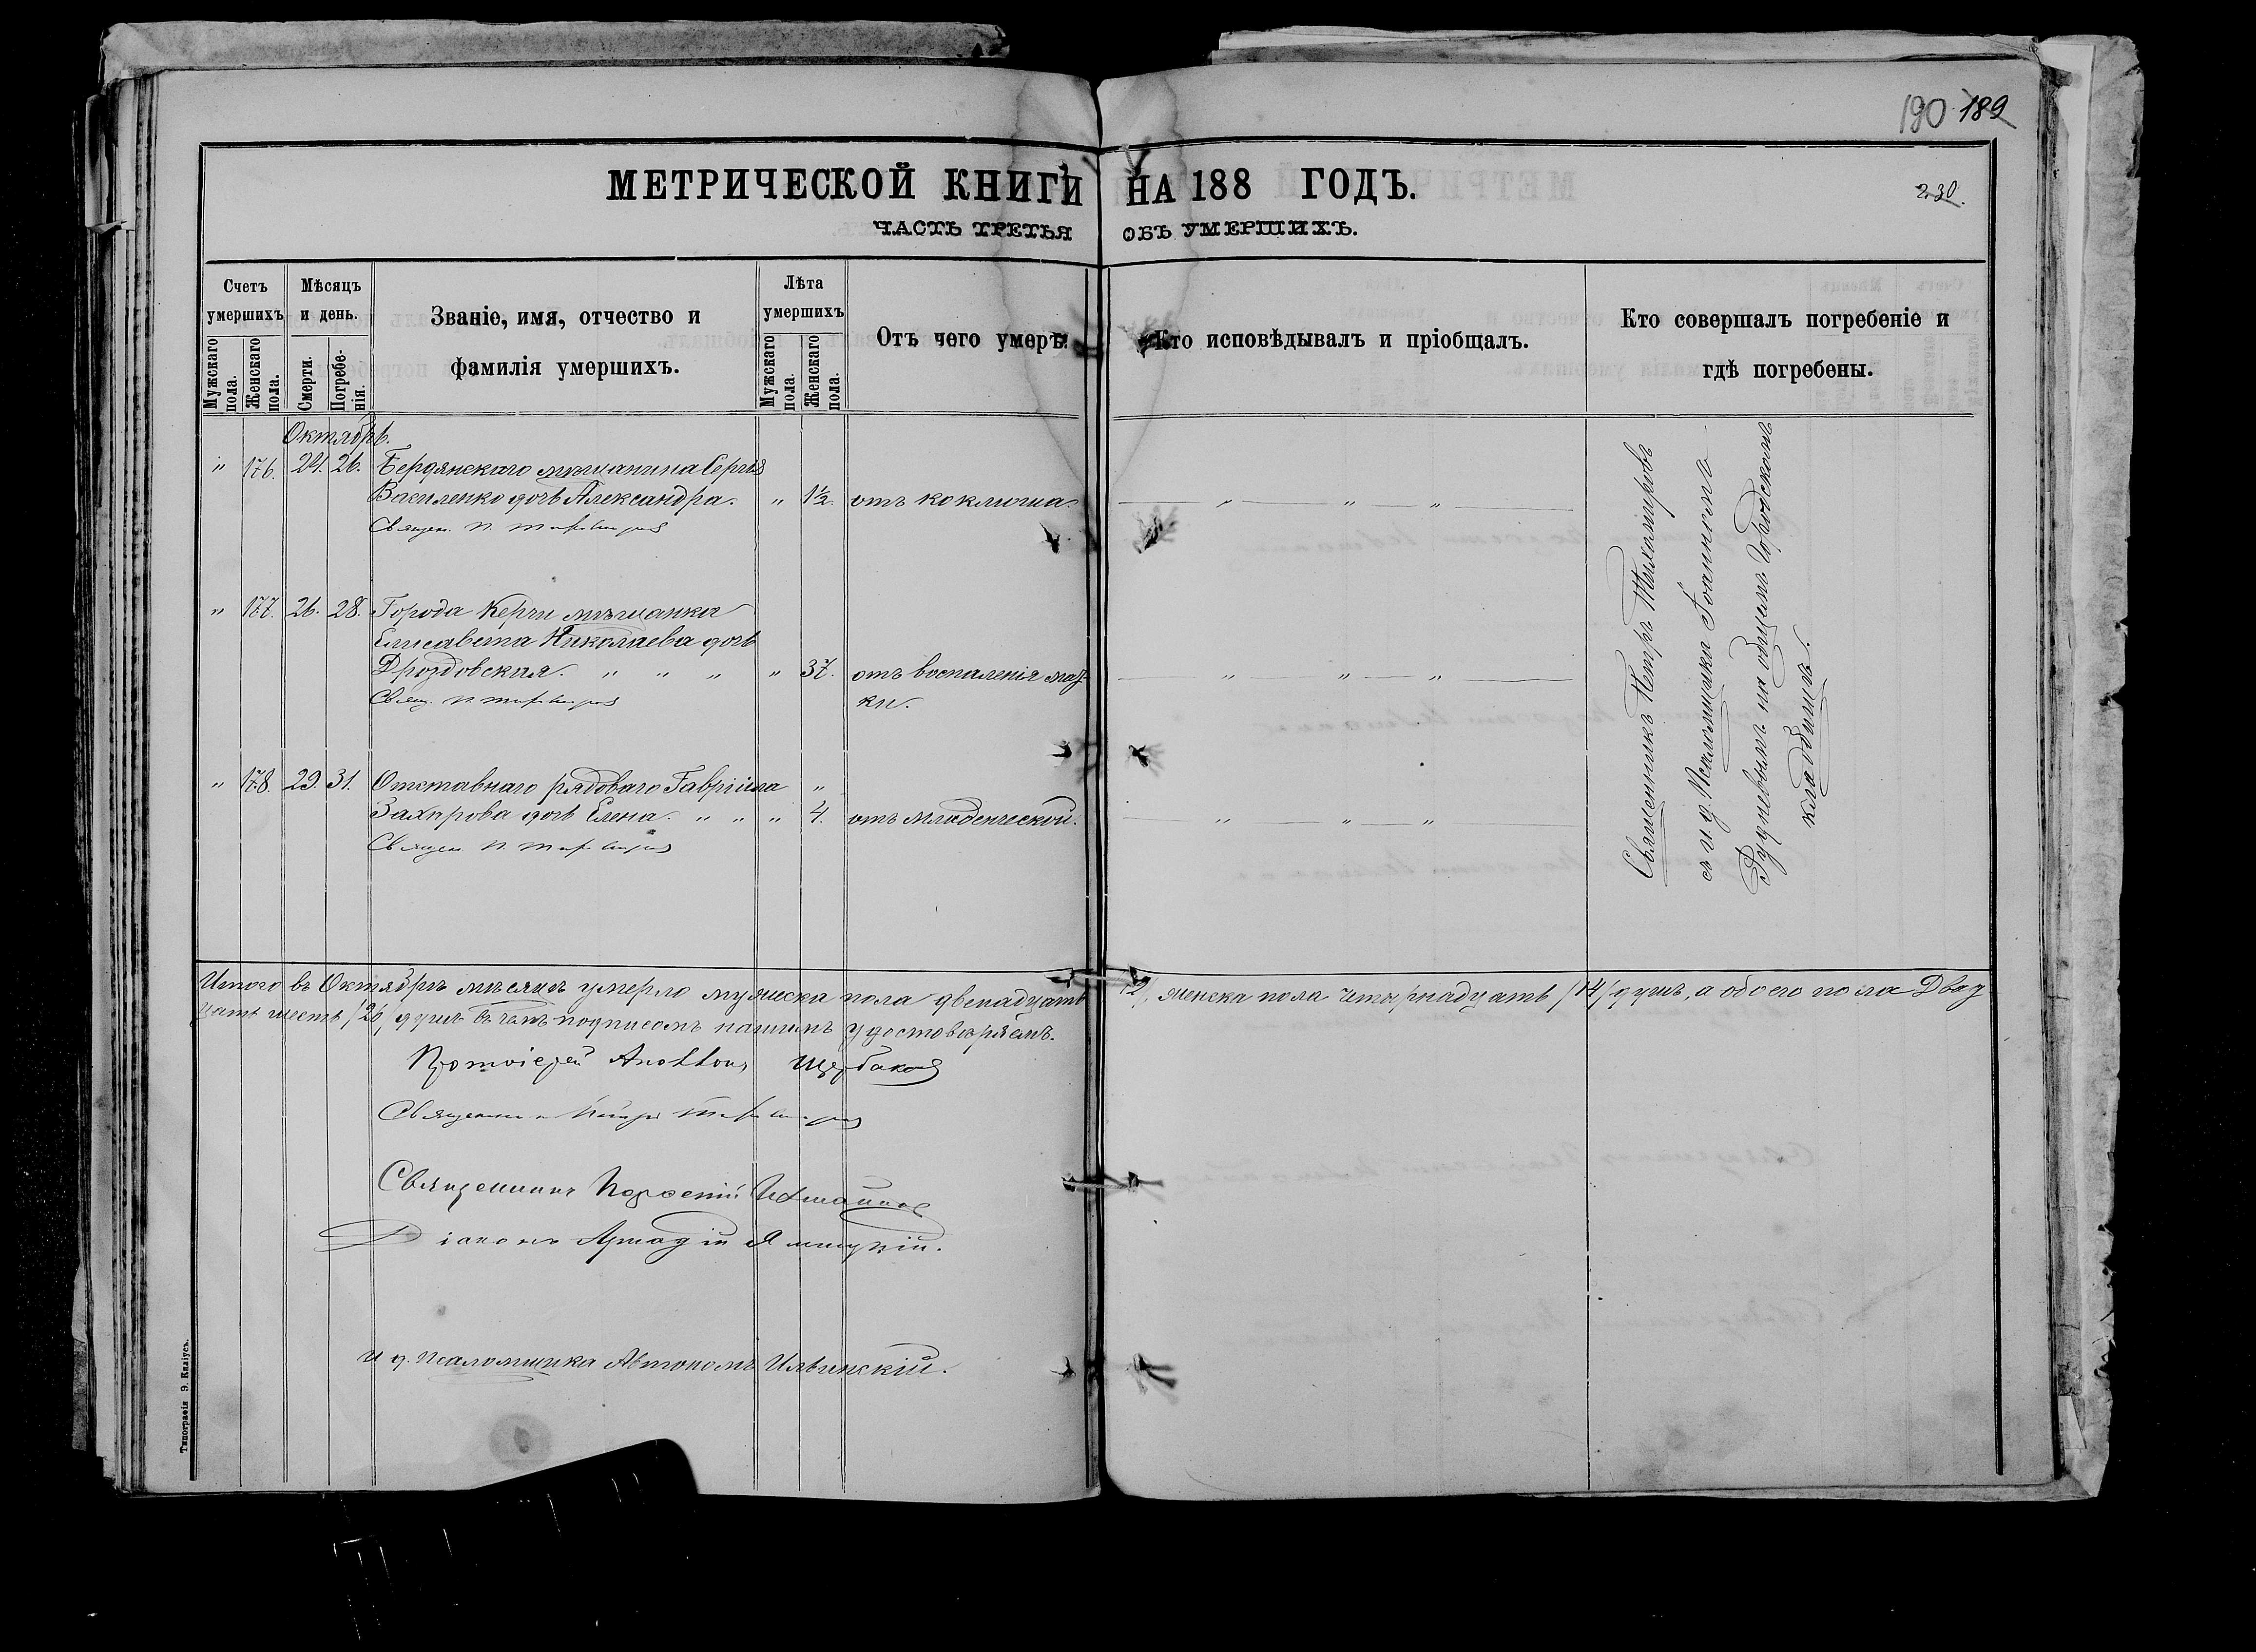 190 189
МЕТРИЧЕСКОЙ КНИГИ НА 188 ГОДЪ.
230.
ЧАСТЬ ТРЕТЬЯ ОБЪ УМЕРШИХЪ.
Счетъ умершихъ
Мужскаго пола.
Женскаго пола.
Мѣсяцъ и день.
Смерти.
Погребенія.
Званіе, имя, отчество и
фамилія умершихъ.
Лѣта умершихъ
Мужскаго пола.
Женскаго пола.
Отъ чего умеръ.
Кто исповѣдывалъ и пріобщалъ.
Кто совершалъ погребеніе и
гдѣ погребены.
Октябрь.
" 176. 24. 26. Бердянскаго мѣщанина Сергѣя
Василенко дочь Александра. " 1½. отъ коклюша. " " "
Священ. П.
" 177. 26. 28. Города Керчи мѣщанка
Елисавета Николаева дочь
Дроздовская. " " " " 37. отъ воспаленія мат- " " "
Свящ. П. ки.
" 178. 29. 31. Отставнаго рядоваго Гавріила "
Захарова дочь Елена. " " " 4. отъ младенческой. " " "
Священ. П.
Священникъ Петръ
съ и д. Псаломщика Іоанномъ
Рудневымъ на общемъ городскомъ
кладбищѣ.
Итого въ Октябрѣ мѣсяцѣ умерло мужеска пола двенадцать /12/, женска пола четырнадцать /14/ душъ, а обоего пола Двад
цать шесть /26/ душъ въ чемъ подписомъ нашимъ удостовѣряемъ.
Протоіерей Аполлонъ Щербаковъ
Священникъ Петръ
Священникъ
Діаконъ Аркадій
И д. Псаломщика Автономъ Ильинскій.
Типографія Э. Килiусъ.